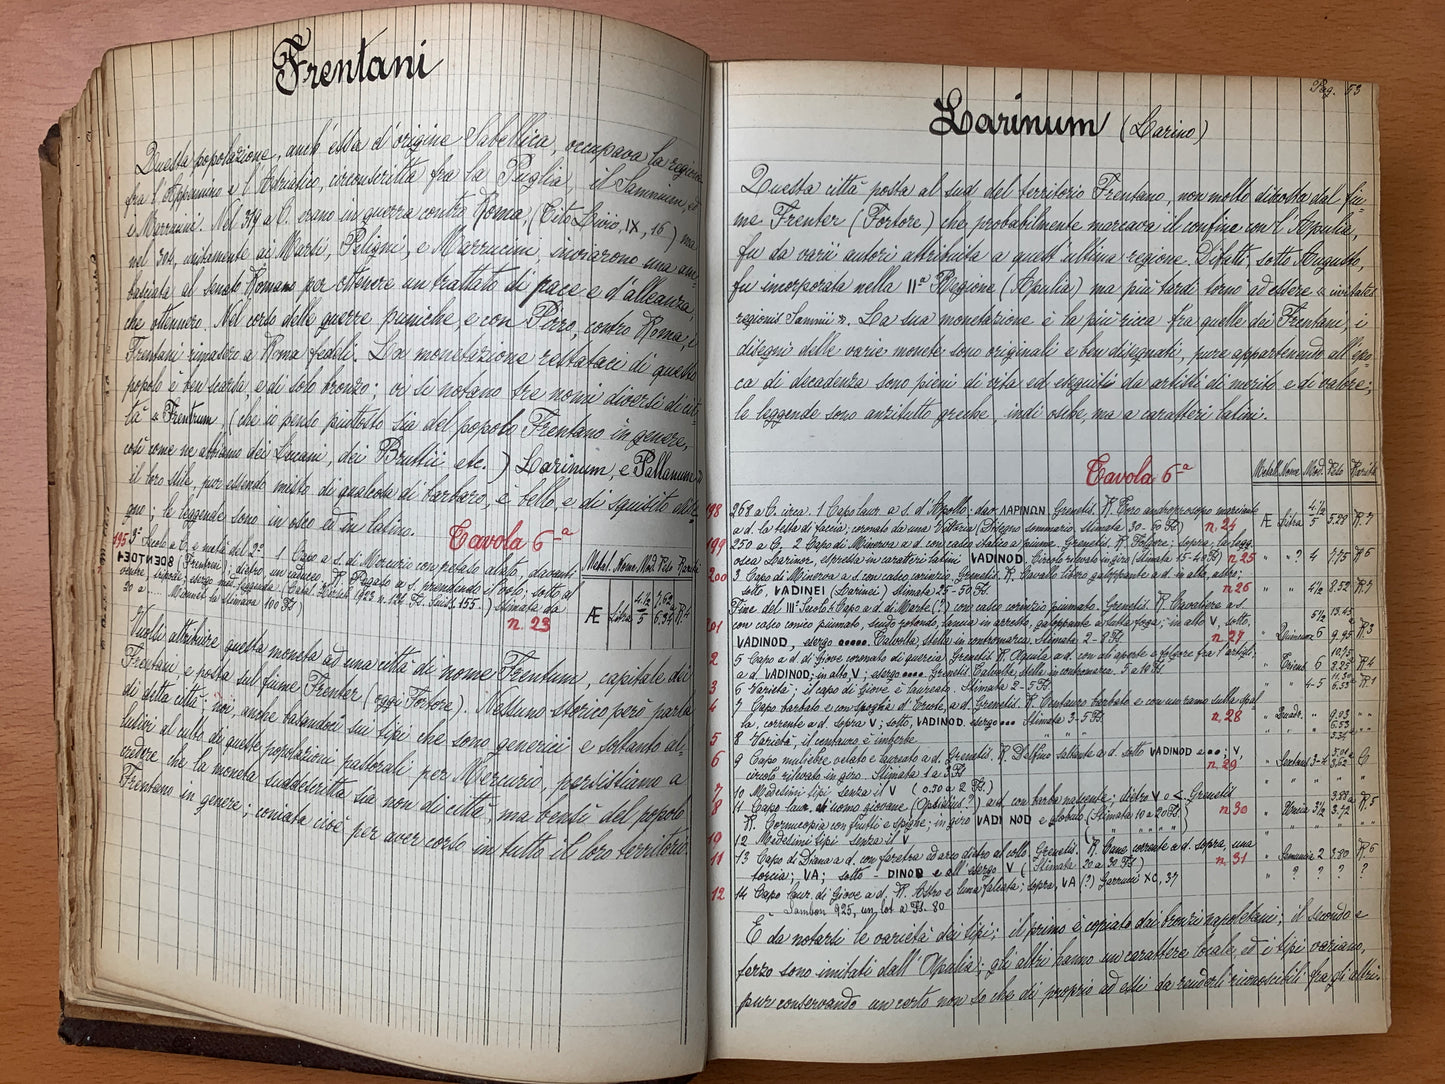 Frentani
Questa popolazione, anch'essa d'origine Sabellica, occupava la regione
fra l'Appennino e l'Adriatico, circoscritta fra la Puglia, il Samnium, ed
i Marrucini. Nel 319 a C. erano in guerra contro Roma, (Tito Livio, IX, 16) ma
nel 304, unitamente ai Marsi, Peligni, e Marrucini, inviarono una am-
basciata al senato Romano per ottenere un trattato di pace e d'alleanza,
che ottennero. Nel corso delle guerre puniche, e con Pirro, contro Roma, i
Frentani rimasero a Roma fedeli. La monetazione restataci di questo
popolo è ben scarsa, e di solo bronzo; vi si notano tre nomi diversi di cit-
tà « Frentrum, (che io penso piuttosto sia del popolo Frentano in genere,
così come ne abbiamo dei Lucani, dei Bruttii etc.) Larinum, e Pallanum »
il loro stile, pur essendo misto di qualcosa di barbaro, è bello, e di squisito dise-
gno; le leggende sono in osco ed in latino.
Tavola 6ª
Metal. Nome. Mod. Peso Rarità
195 3° Secolo a C. e metà del 2°. 1 Capo a s. di Mercurio con petaso alato, davanti
(dietro) un caduceo, R. Pegaso a s. prendendo il volo; sotto al
ventre, tripode; esergo
20 a .... Mionnet la stimava 100 Fs) Stimata da
n. 23
Æ Litra 4.½ 5 7,62 6.34 R.4
Vuolsi attribuire questa moneta ad una città di nome Frentum, capitale dei
Frentani, e posta sul fiume Frenter (oggi Fortore). Nessuno storico però parla
di detta città; noi, anche basandoci sui tipi che sono generici e soltanto al-
lusivi al culto di queste popolazioni pastorali per Mercurio, persistiamo a
credere che la moneta suddescritta sia non di città, ma bensì del popolo
Frentano in genere; coniata cioè per aver corso in tutto il loro territorio
Pag. 53
Larinum (Larino)
Questa città posta al sud del territorio Frentano, non molto discosta dal fiu-
me Frenter (Fortore) che probabilmente marcava il confine con l'Apulia,
fu da varii autori attribuita a quest'ultima regione. Difatti, sotto Augusto,
fu incorporata nella IIª Regione (Apulia) ma più tardi tornò ad essere « civitates
regionis Samnii ». La sua monetazione è la più ricca fra quelle dei Frentani, i
disegni delle varie monete sono originali e ben disegnati, pure appartenendo all'epo-
ca di decadenza sono pieni di vita ed eseguiti da artisti di merito e di valore;
le leggende sono anzitutto greche, indi osche, ma a caratteri latini.
Tavola 6ª
Metall. Nome Mod. Peso Rarità
198 268 a C. circa. 1 Capo laur. a s. d'Apollo. dav. ΛΑΡΙΝΩΝ. Grenetis. R. Toro androprosopo mariante
a d. la testa di faccia; coronata da una Vittoria (Disegno sommario. Stimata 30-50 Fs) n. 24 Æ Litra 4.½ 5 5.88 R.7
199 250 a C. 2 Capo di Minerva a d. con casco attico a piume. Grenetis. R. Folgore; sopra, la legg.
osca Larinor, espressa in caratteri latini VADINOD Circolo rilevato in giro (Stimata 15-40 Fs) n 25 " " ? 4 7.75 R 6
200 3 Capo di Minerva a d. con casco corinzio. Grenetis. R. Cavallo libero galoppante a d. in alto, astro;
sotto, VADINEI (Larinei) Stimata 25-50 Fs. n 26 " " 4½ 8.52 R.7
Fine del III° Secolo. 4 Capo a d. di Marte (?) con casco corinzio piumato. Grenetis. R. Cavaliere a s.
201 con casco conico piumato, scudo rotondo, lancia in arresto, galoppante a tutta foga; in alto V, sotto,
VADINOD, esergo ●●●●●. Talvolta, stella in contromarca. Stimata 2-8 Fs n. 27 " Quincunx 5½ 6 13.43 9.95 R.3
2 5 Capo a d. di Giove coronato di quercia. Grenetis. R. Aquila a d. con ali aperte e folgore fra l'artigli.
a d. VADINOD; in alto, V; esergo ●●●● Grenetis Talvolta, stella in contromarca. 5 a 10 Fs " Triens 6 10.75 8.25 R.4
3 6 Varietà; il capo di Giove è laureato. Stimata 2-5 Fs. " " 4-5 11.30 6.55 R.1
4 7 Capo barbato e con spoglia d'Ercole, a d. Grenetis. R. Centauro barbato e con un ramo sulla spal-
la, corrente a d. sopra V; sotto, VADINOD. esergo ●●● Stimata 3-5 Fs. n. 28 " Quadr. " 9.03 6.53 " "
5 8 Varietà, il centauro è imberbe " " " 5.34 " "
6 9 Capo muliebre velato e laureato a d. Grenetis. R. Delfino saltante a d. sotto VADINOD e ●●; V,
circolo rilevato in giro. Stimata 1 a 3 Fs n. 29 " Sextans 3-4 5.04 3.62 C
7 10 Medesimi tipi senza il V (0.50 a 2 Fs.)
8 11 Capo laur. di uomo giovane (Opisius?) a d. con barba nascente; dietro V o <. Grenetis
R. Cornucopia con frutti e spighe; in giro VADINOD e globulo (Stimata 10 a 20 Fs.) n 30 " Uncia 3½ 3.88 3.72 R.5
10 12 Medesimi tipi senza il V
11 13 Capo di Diana a d. con faretra ad arco dietro al collo. Grenetis. R. Cane corrente a d. sopra, una
torcia; VA; sotto - DINOD e all'esergo V (Stimata 20 a 30 Fs) n. 31 " Semuncia 2 3.80 R.6
12 14 Capo laur. di Giove a d. R. Astro e luna falcata; sopra, VA (?) Garrucci XC, 37 " ? ? ? ?
Sambon 925, un lot a Fs. 80
È da notarsi le varietà dei tipi; il primo è copiato dai bronzi napoletani; il secondo e
terzo sono imitati dall'Apulia; gli altri hanno un carattere locale, ed i tipi variano,
pur conservando un certo non so che di proprio ad essi da renderli riconoscibili fra gli altri.